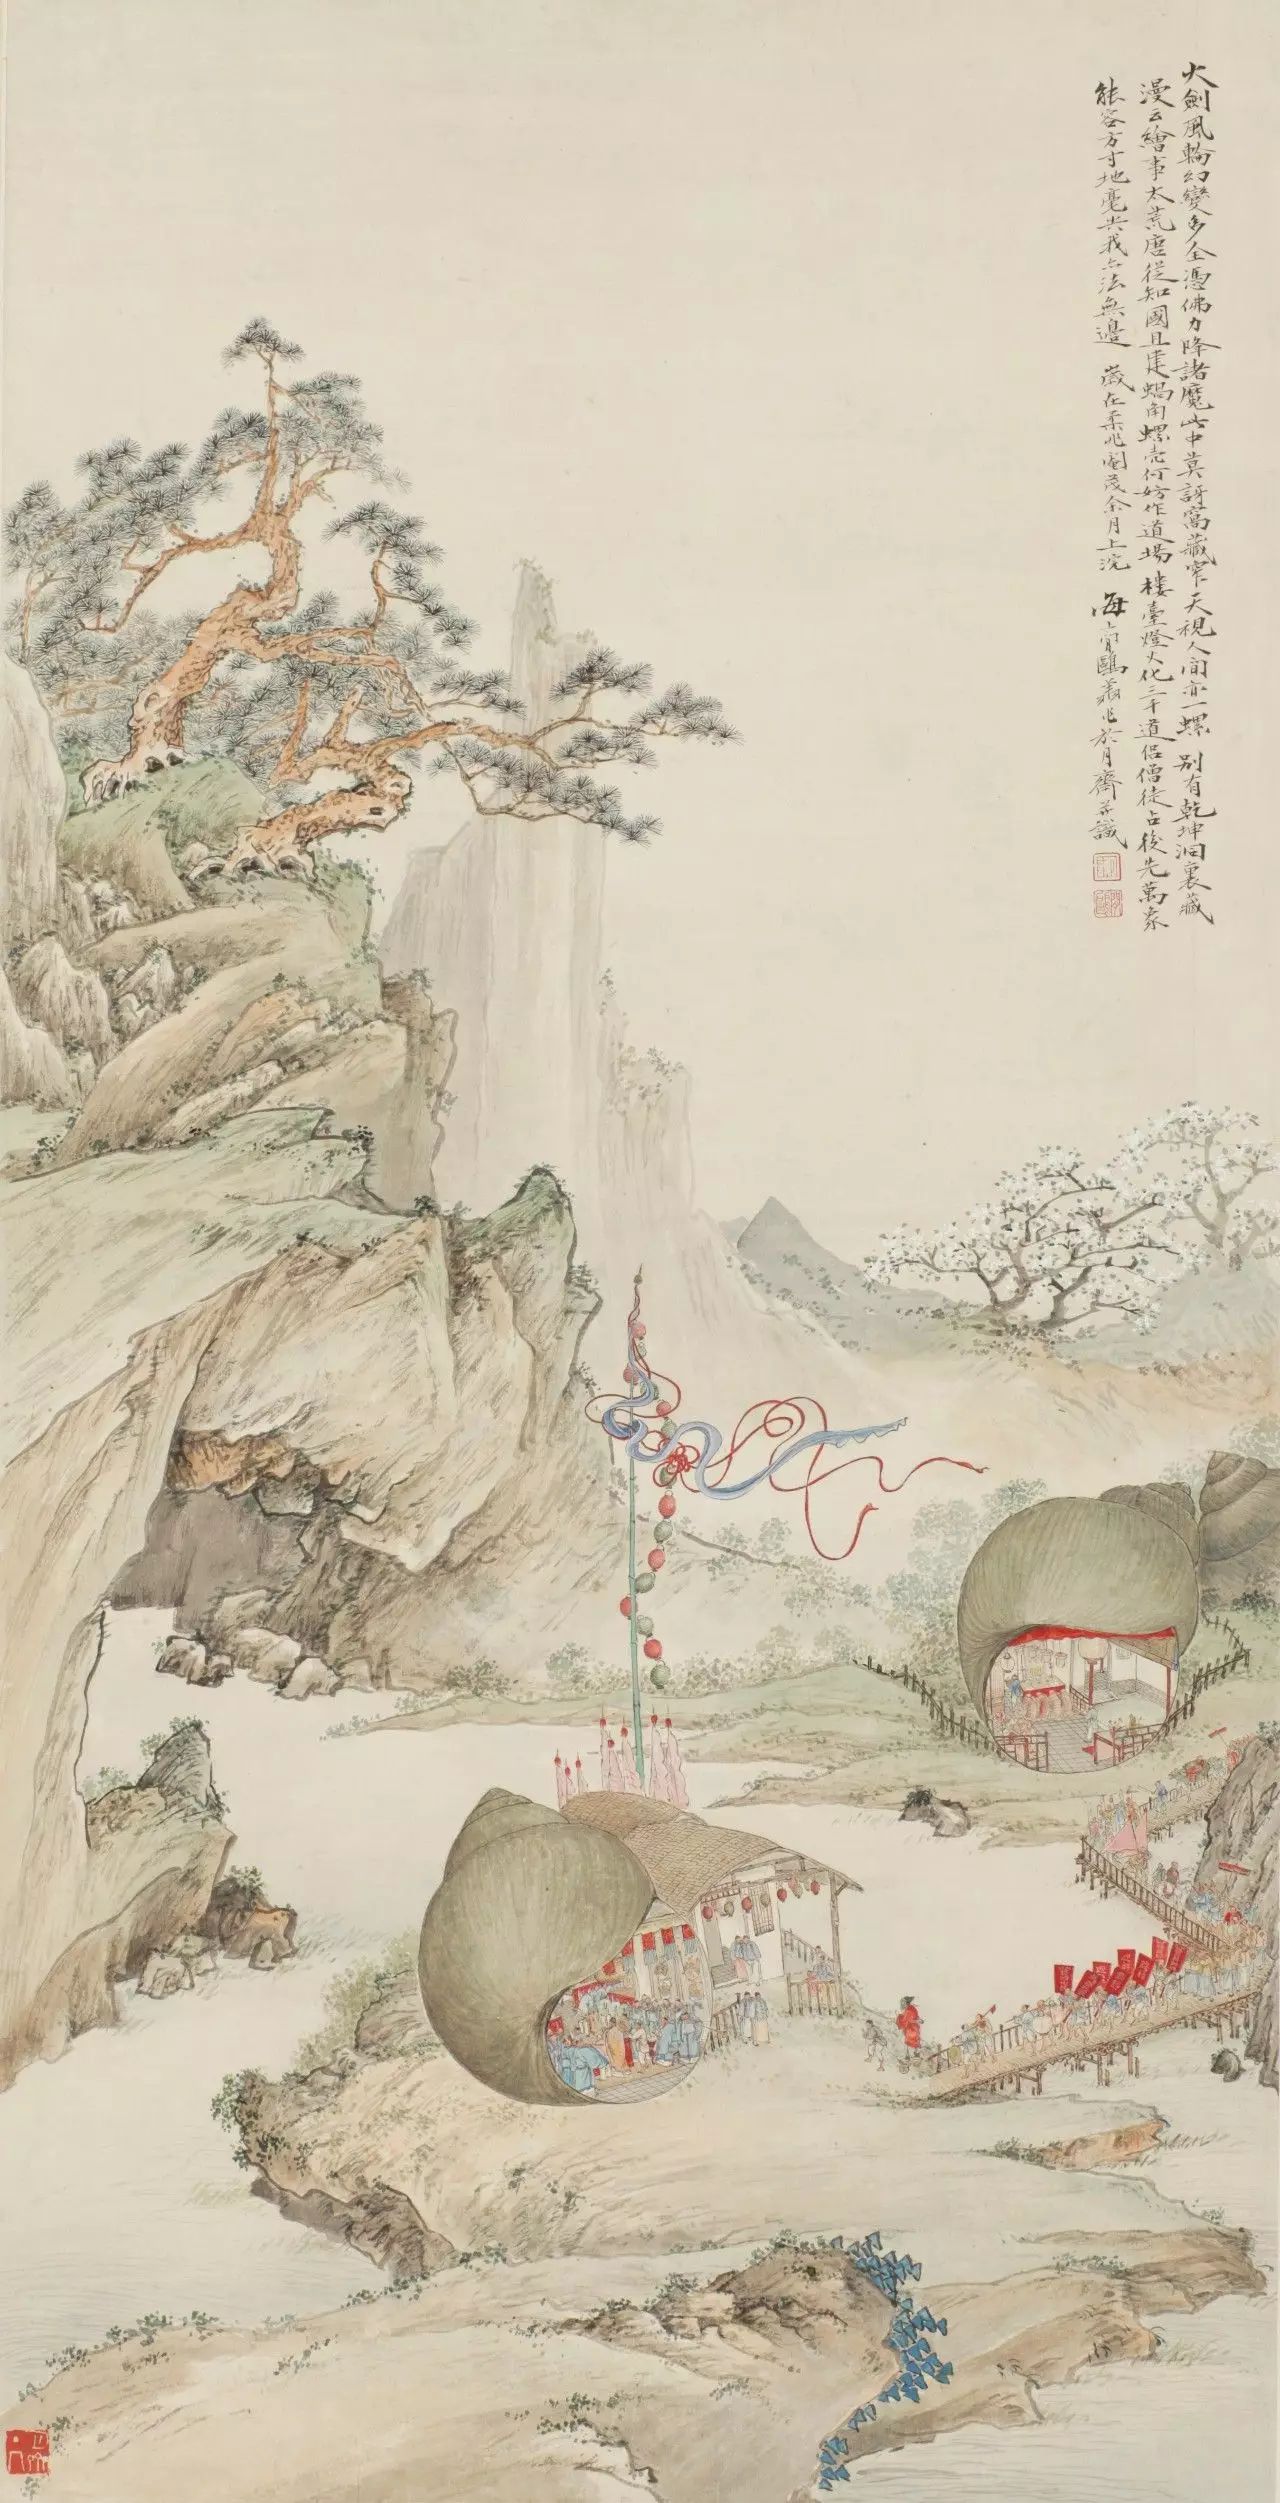 火劍風輪幻變多全憑佛力降諸魔此中莫訝窩藏窄天視人間亦一螺 別有乾坤洞裏藏
漫云繪事太荒唐從知國且建蝸角螺壳何妨作道場 樓臺燈火化三千道侶僧徒占後先萬象
能容方寸地毫尖我亦法無邊 歲在柔兆閹茂余月上浣 海上 鷗 兆於月齋并識